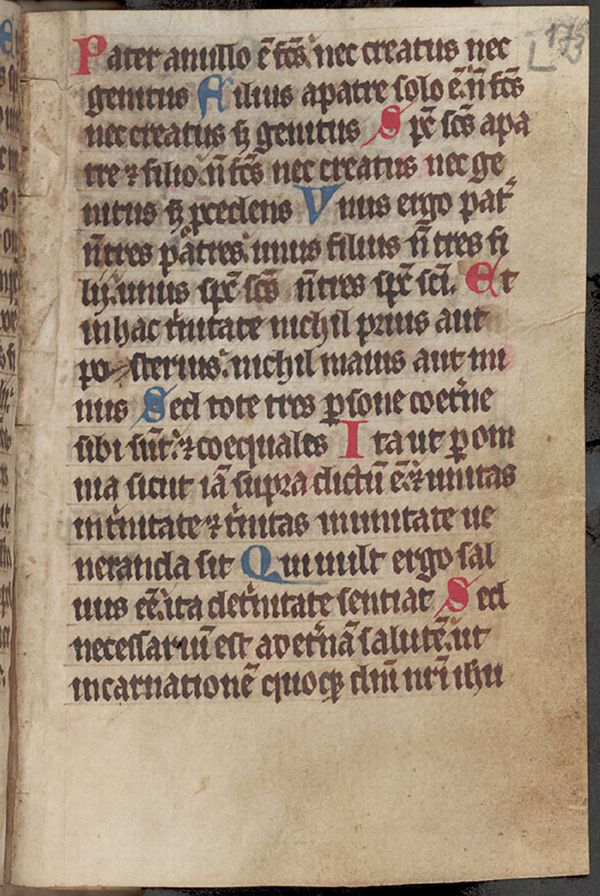 Pater anullo ē fc̄s nec creatus nec
genitus Filius apatre solo ē. n̄ fc̄s
nec creatus sꝫ genitus Sp̄c sc̄s apa
tre ⁊ filio. n̄ fc̄s nec creatus nec ge
nitus sꝫ ꝓcedens Unus ergo pat̾
n̄ tres patres. unus filius n̄ tres fi
lij. unus sp̄c sc̄s n̄ tres sp̄c sc̄i. Et
in hac t̾nitate nichil prius aut
posterius. nichil maius aut mi
nus Sed tote tres ꝑsone coet̾ne
sibi sūt. ⁊ coequales Ita ut ꝑ om
nia sicut iā supra dictū ē. ⁊ unitas
in t̾nitate ⁊ t̾nitas in unitate ue
neranda sit Qui uult ergo sal
uus eē. ita de t̾nitate sentiat Sed
necessariū est ad et̾nā salutē. ut
incarnationē quoqꝫ dn̄i nr̄i ihu